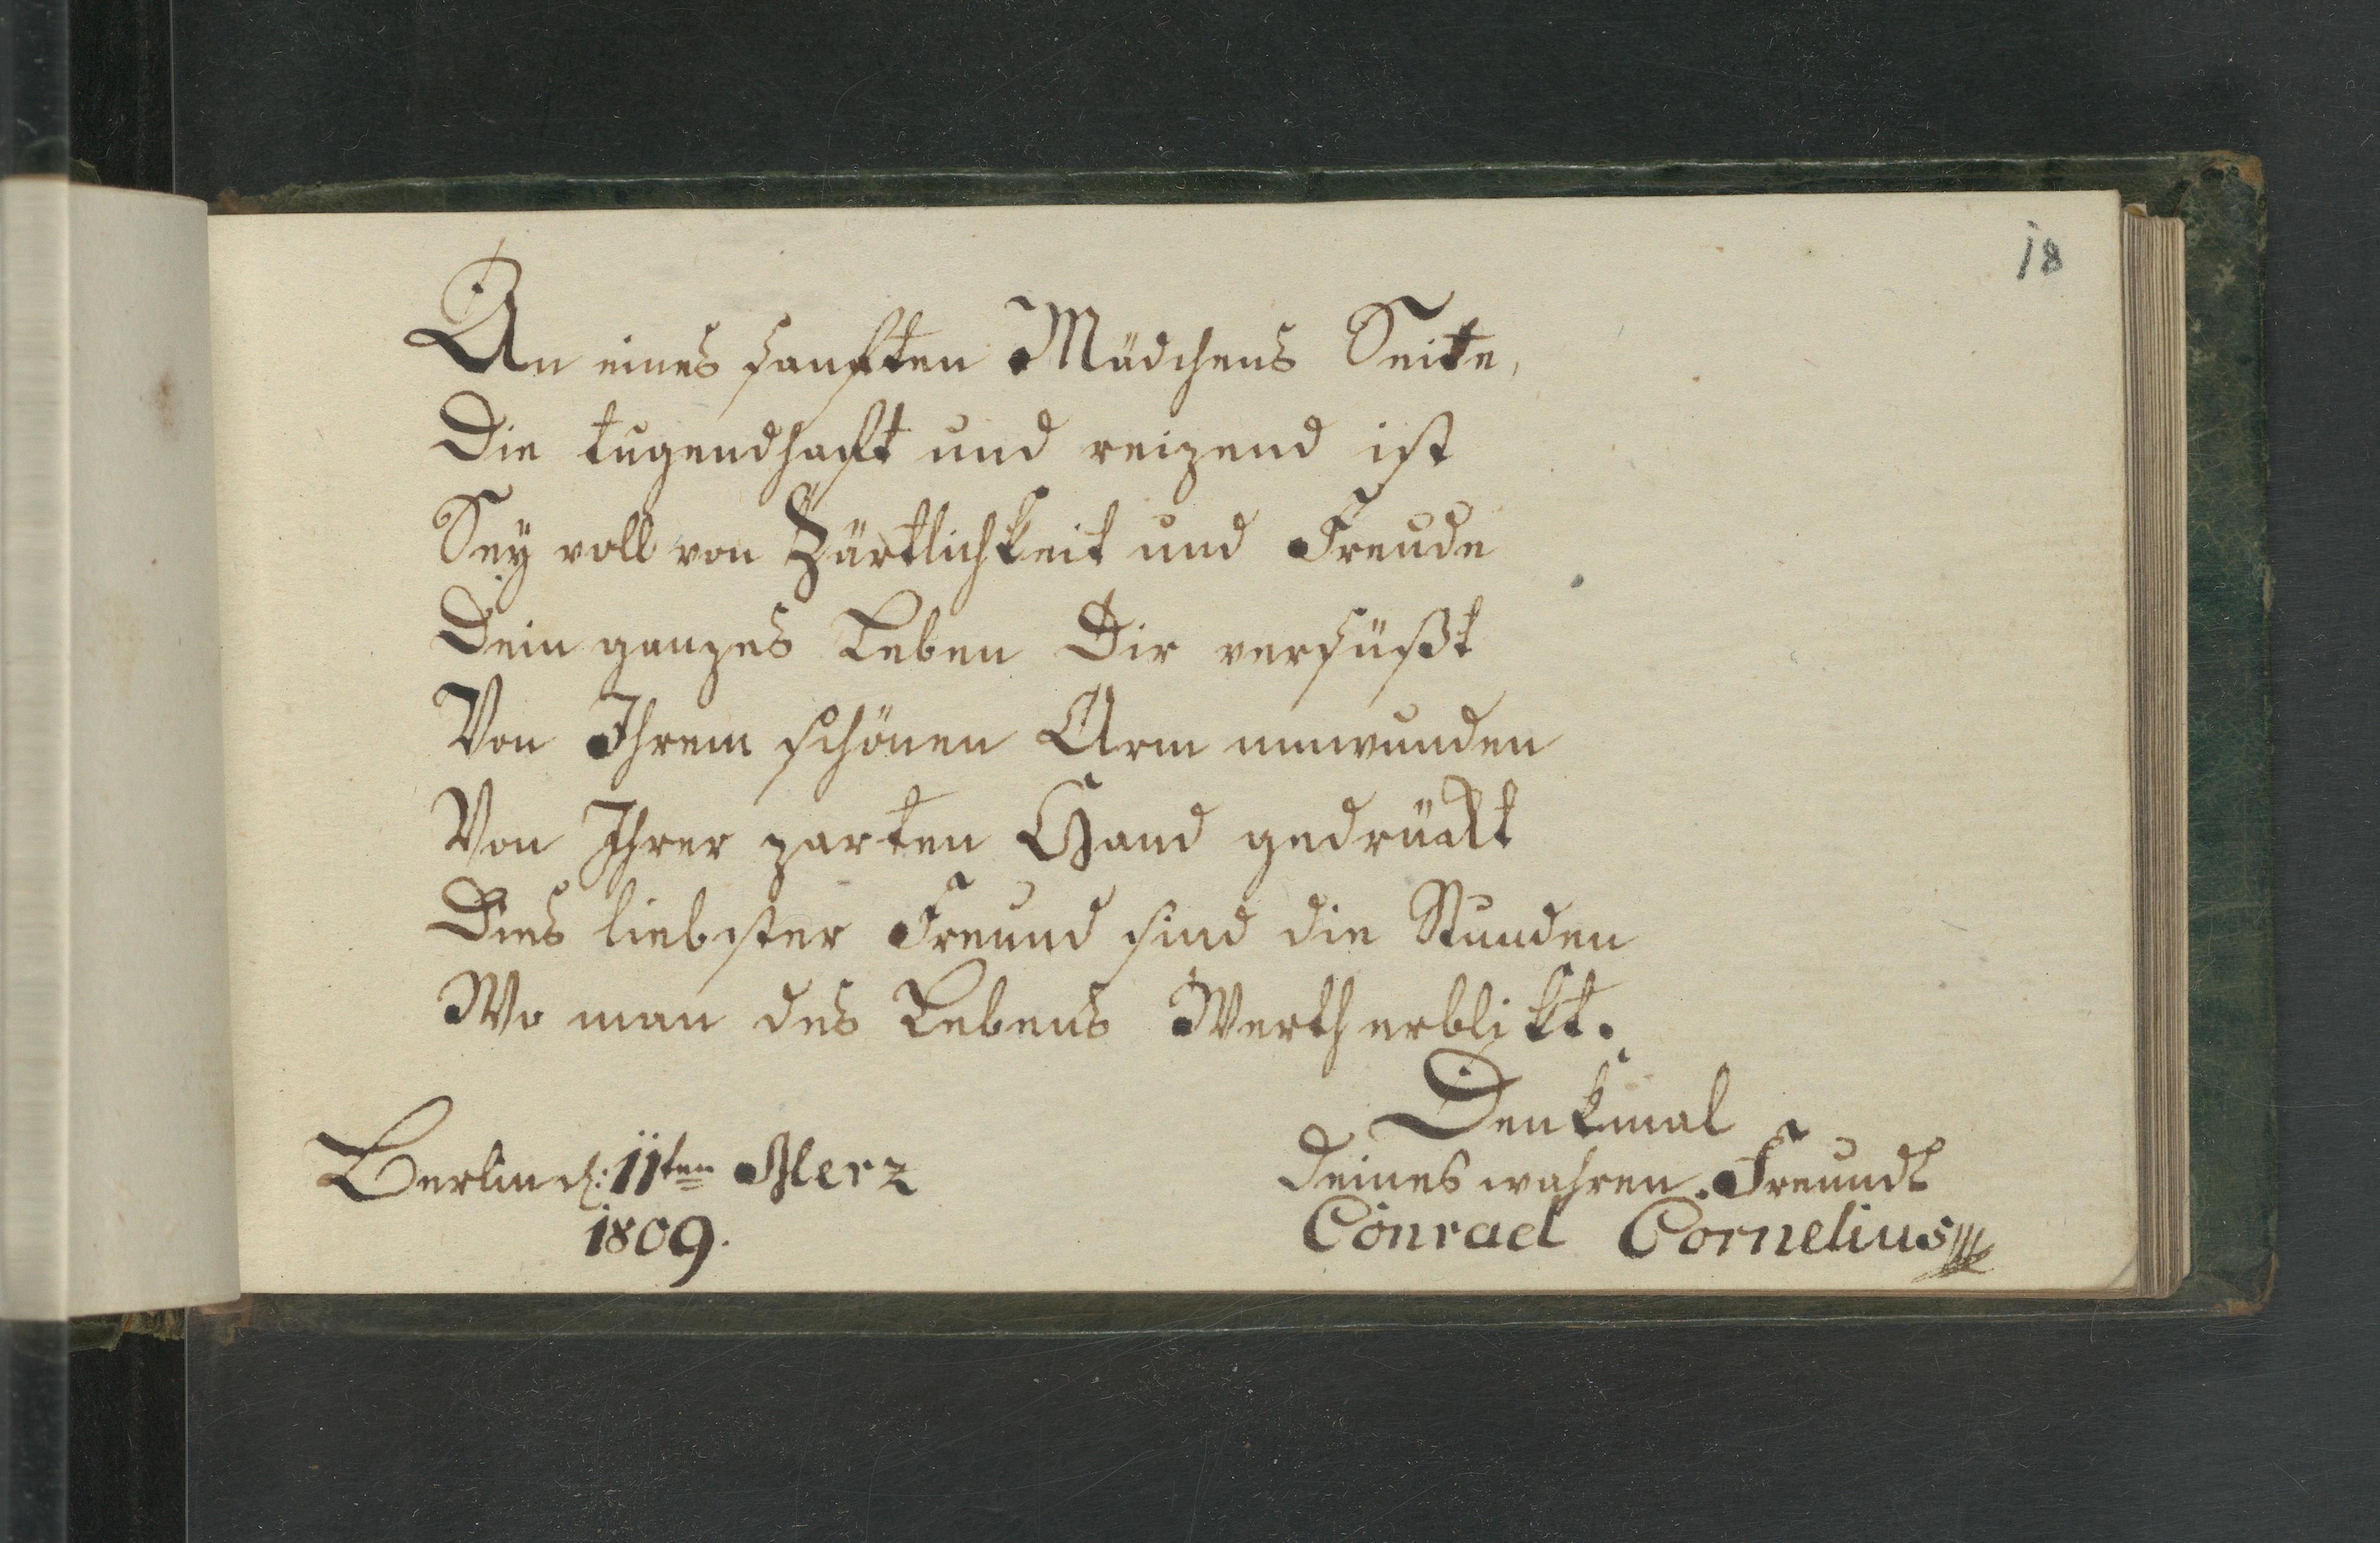 18
An eines sanften Mädchens Seite,
Die tugendhaft und reizend ist
Sey voll von Zärtlichkeit und Freude
Dein ganzes Leben Dir versüßt
Von Ihrem schönen Arm umwunden
Von Ihrer zarten Hand gedrückt
Dies liebster Freund sind die Stunden
Wo man des Lebens Werth erblikt.
Denkmal
Berlin d: 11ten Merz deines wahren Freunds
1809. Conrad Cornelius